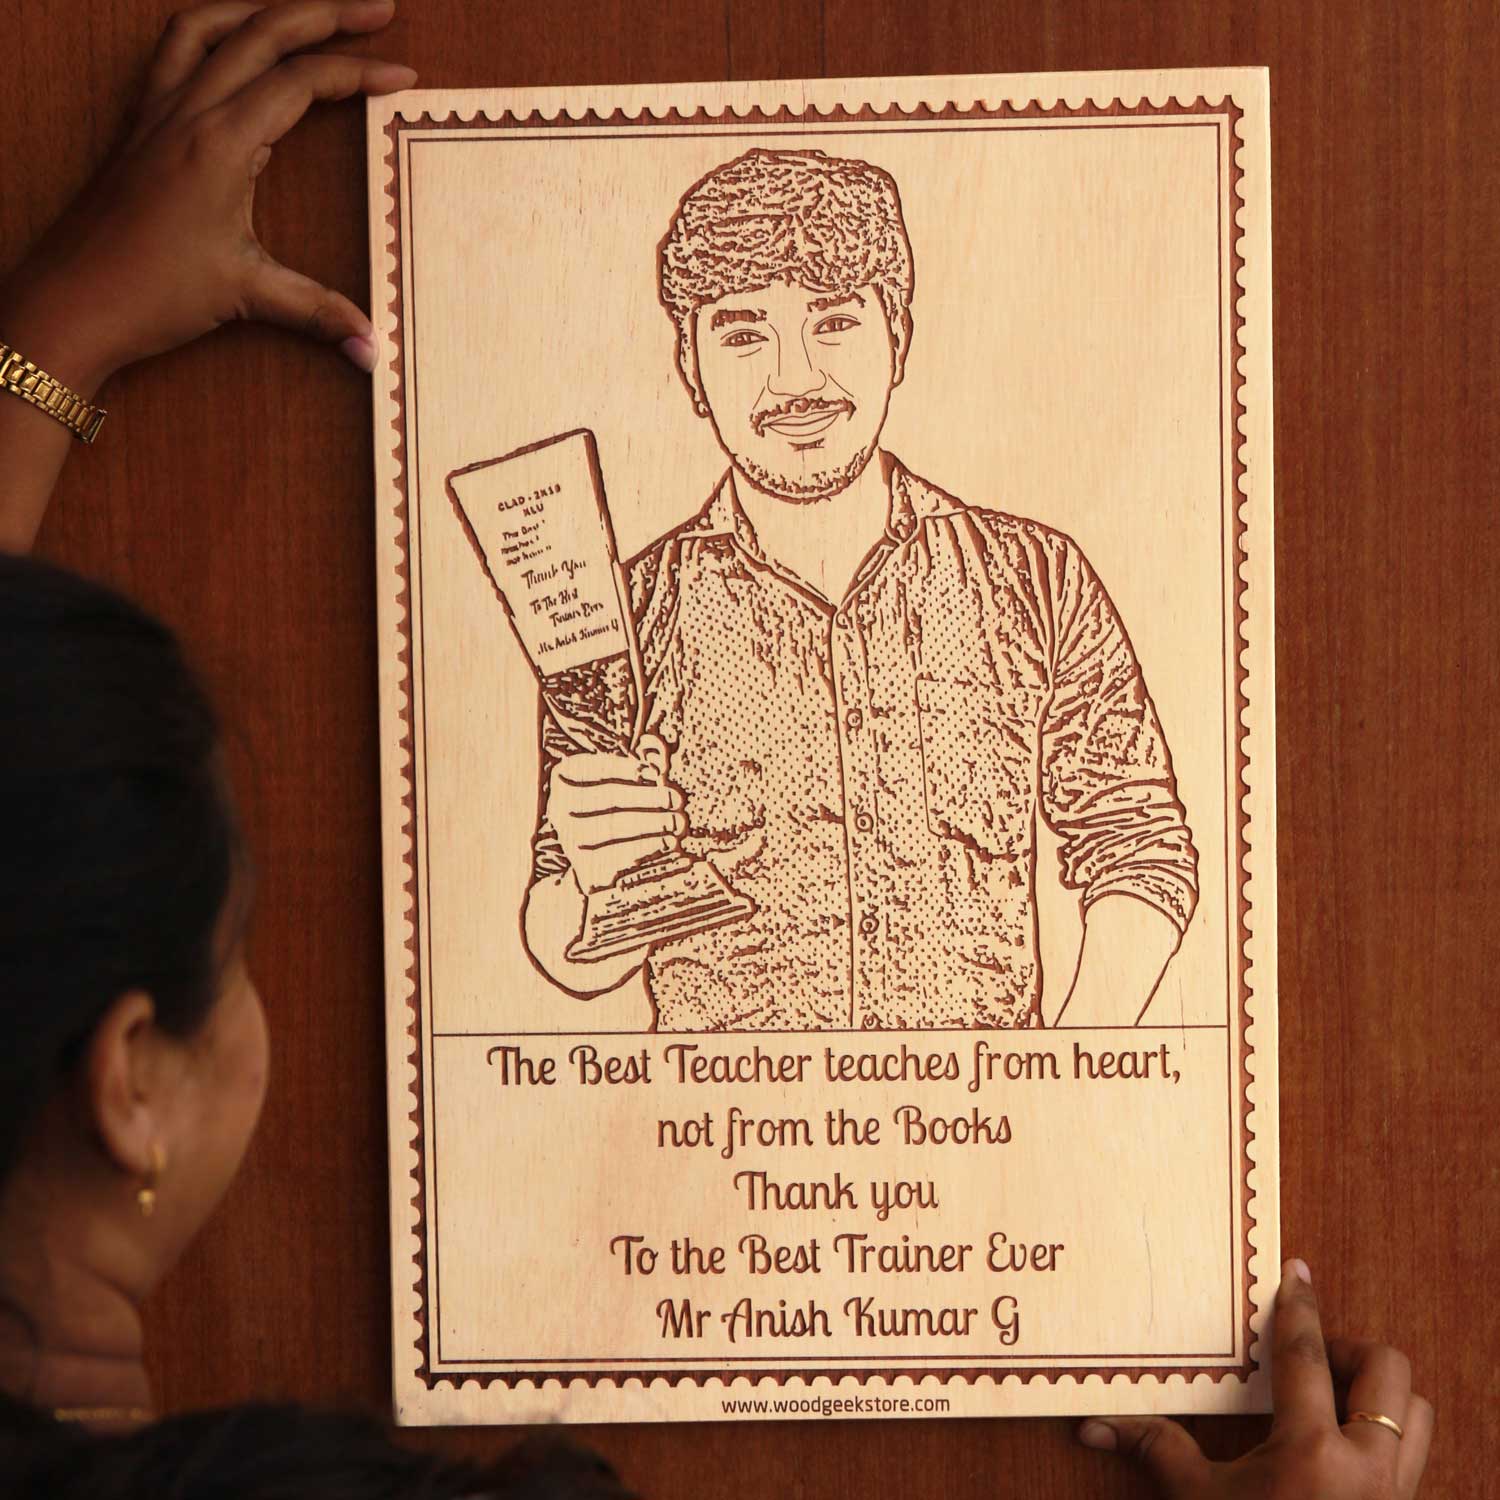 GLAD - 2K19
KLU
The Best
Thank You
To The Best
Mr. Anish Kumar G
The Best Teacher teaches from heart,
not from the Books
Thank you
To the Best Trainer Ever
Mr Anish Kumar G
www.woodgeekstore.com